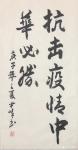 抗击疫情中
華必勝
庚子年